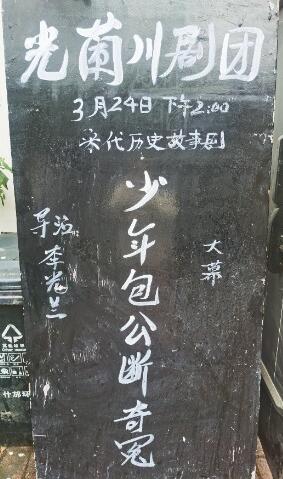 光蘭川剧团
3月24日 下午2:00
宋代历史故事剧
大幕
少年包公断奇冤
导演 李光兰
什邡环